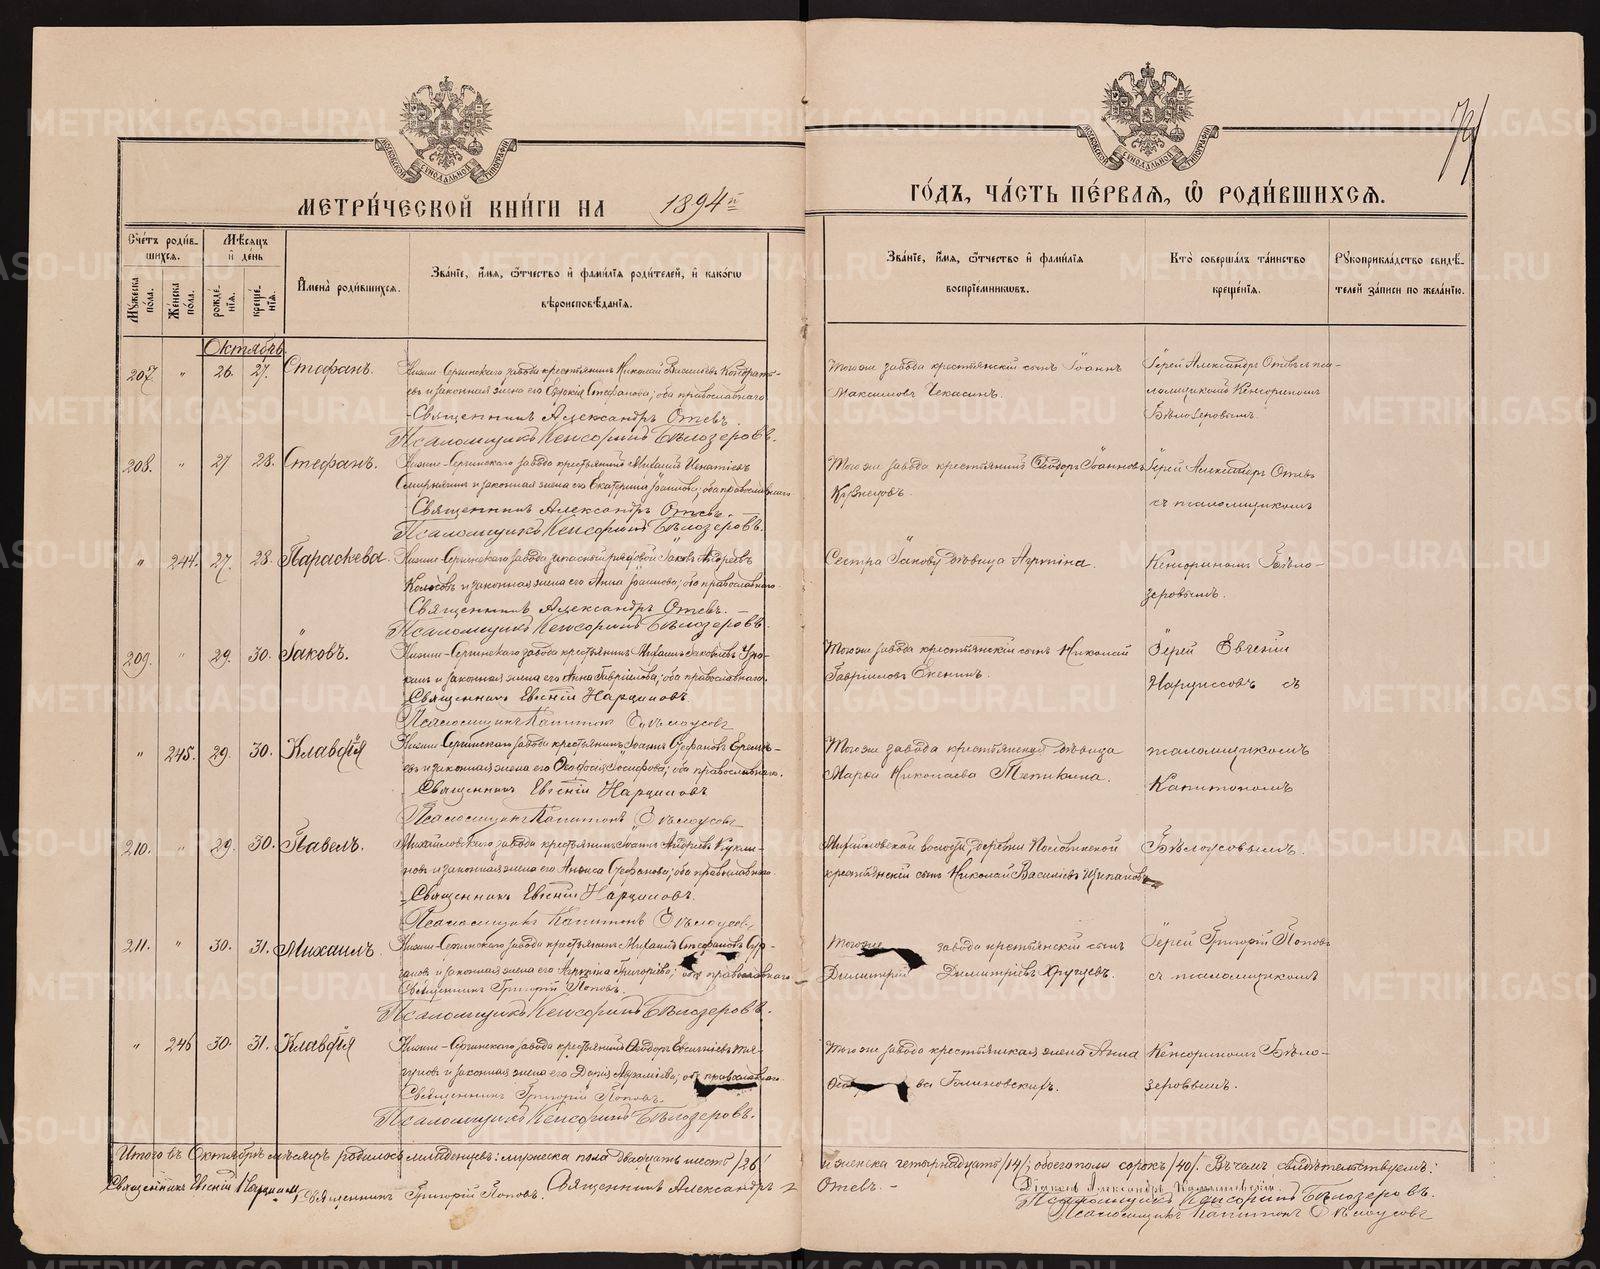 МЕТРИ́ЧЕСКОЙ КНИ́ГИ НА 1894й
ГО́ДЪ, ЧА́СТЬ ПЕ́РВАЯ, Ѽ РОДИ́ВШИХСЯ.
МОСКОВСКОЙ СѴНОДАЛЬНОЙ ТИПОГРАФІИ
МОСКОВСКОЙ СѴНОДАЛЬНОЙ ТИПОГРАФІИ
Сче́тъ роди́в-
шихся.
Мѣ́сяцъ
и҆ де́нь
Мꙋ́жеска по́ла.
Же́нска по́ла.
рожде́-
нїѧ.
креще́-
нїѧ.
И҆мена̀ роди́вшихся.
Зва́нїе, и҆́мѧ, ѻ҆́тчество и҆ фами́лїѧ роди́телей, и҆ како́гѡ
вѣроисповѣ́данїѧ.
Зва́нїе, и҆́мѧ, ѻ҆́тчество и҆ фами́лїѧ
воспрїе́мникѡвъ.
Кто̀ соверша́лъ та́инство
креще́нїѧ.
Рꙋкоприкла́дство свидѣ́-
телей за́писи по жела́нїю.
Октябрь
207. " 26. 27. Стефанъ.
Нижне-Сергинскаго завода крестьянинъ Николай Василіевъ
и законная жена его Евдокія Стефанова; оба православнаго
Священникъ Александръ Отевъ.
Псаломщикъ Кенсоринъ Бѣлозеровъ.
Тогоже завода крестьянскій сынъ Іоаннъ
Максимовъ Чекасинъ.
Іерей Александръ Отевъ съ пса-
ломщикомъ Кенсориномъ
Бѣлозеровымъ.
208. " 27 28. Стефанъ.
Нижне-Сергинскаго завода крестьянинъ Михаилъ Игнатіевъ
Смирнягинъ и законная жена его Екатерина Іоаннова; оба православнаго
Священникъ Александръ Отевъ.
Псаломщикъ Кенсоринъ Бѣлозеровъ.
Тогоже завода крестьянинъ Ѳеодоръ Іоанновъ
Кузнецовъ.
Іерей Александръ Отевъ
съ псаломщикомъ
" 244. 27. 28. Параскева.
Нижне-Сергинскаго завода запасный рядовой Іаковъ Андреевъ
Колосовъ и законная жена его Анна Іоаннова; оба православнаго
Священникъ Александръ Отевъ. —
Псаломщикъ Кенсоринъ Бѣлозеровъ.
Сестра Іакову дѣвица
Кенсориномъ Бѣло-
зеровымъ.
209. " 29. 30. Іаковъ.
Нижне-Сергинскаго завода крестьянинъ Михаилъ Іаковлевъ
и законная жена его Анна Гавріилова; оба православнаго.
Священникъ Евгеній Нарциссовъ.
Псаломщикъ Капитонъ Бѣлоусовъ
Тогоже завода крестьянскій сынъ Николай
Гавріиловъ Екенинъ.
Іерей Евгеній
Нарциссовъ съ
" 245. 29. 30. Клавдія
Нижне-Сергинскаго завода крестьянинъ Іоаннъ Стефановъ Еремѣ-
евъ и законная жена его Ѳеодосія Іосифова; оба православнаго.
Священникъ Евгеній Нарциссовъ
Псаломщикъ Капитонъ Бѣлоусовъ
Тогоже завода крестьянская дѣвица
Марѳа Николаева Тепикина.
псаломщикомъ
Капитономъ
210. " 29. 30. Павелъ.
Михайловскаго завода крестьянинъ Іоаннъ Андреевъ Кукли-
новъ и законная жена его Анисья Стефанова; оба православнаго.
Священникъ Евгеній Нарциссовъ.
Псаломщикъ Капитонъ Бѣлоусовъ
Михайловской волости деревни
крестьянскій сынъ Николай Василіевъ Щипановъ
Бѣлоусовымъ.
211. " 30. 31. Михаилъ.
Нижне-Сергинскаго завода крестьянинъ Михаилъ Стефановъ
и законная жена его Григоріева; оба православнаго
Священникъ Григорій Поповъ.
Псаломщикъ Кенсоринъ Бѣлозеровъ.
Тогоже завода крестьянскій сынъ
Димитрій Димитріевъ
Іерей Григорій Поповъ
съ псаломщикомъ
" 246 30. 31. Клавдія
Нижне-Сергинскаго завода крестьянинъ Ѳеодоръ
и законная жена его Дарія; оба православнаго.
Священникъ Григорій Поповъ.
Псаломщикъ Кенсоринъ Бѣлозеровъ.
Тогоже завода крестьянская жена Анна
ва Голиновскихъ.
Кенсориномъ Бѣло-
зеровымъ.
Итого въ Октябрѣ мѣсяцѣ родилось младенцевъ: мужеска пола двадцать шесть /26/
и женска четырнадцать /14/; обоего пола сорокъ /40/. Въ чемъ свидѣтельствуемъ:
Священникъ Евгеній Нарциссовъ Священникъ Григорій Поповъ. Священникъ Александръ
Отевъ. —
Діаконъ Александръ
Псаломщикъ Кенсоринъ Бѣлозеровъ.
Псаломщикъ Капитонъ Бѣлоусовъ
METRIKI.GASO-URAL.RU